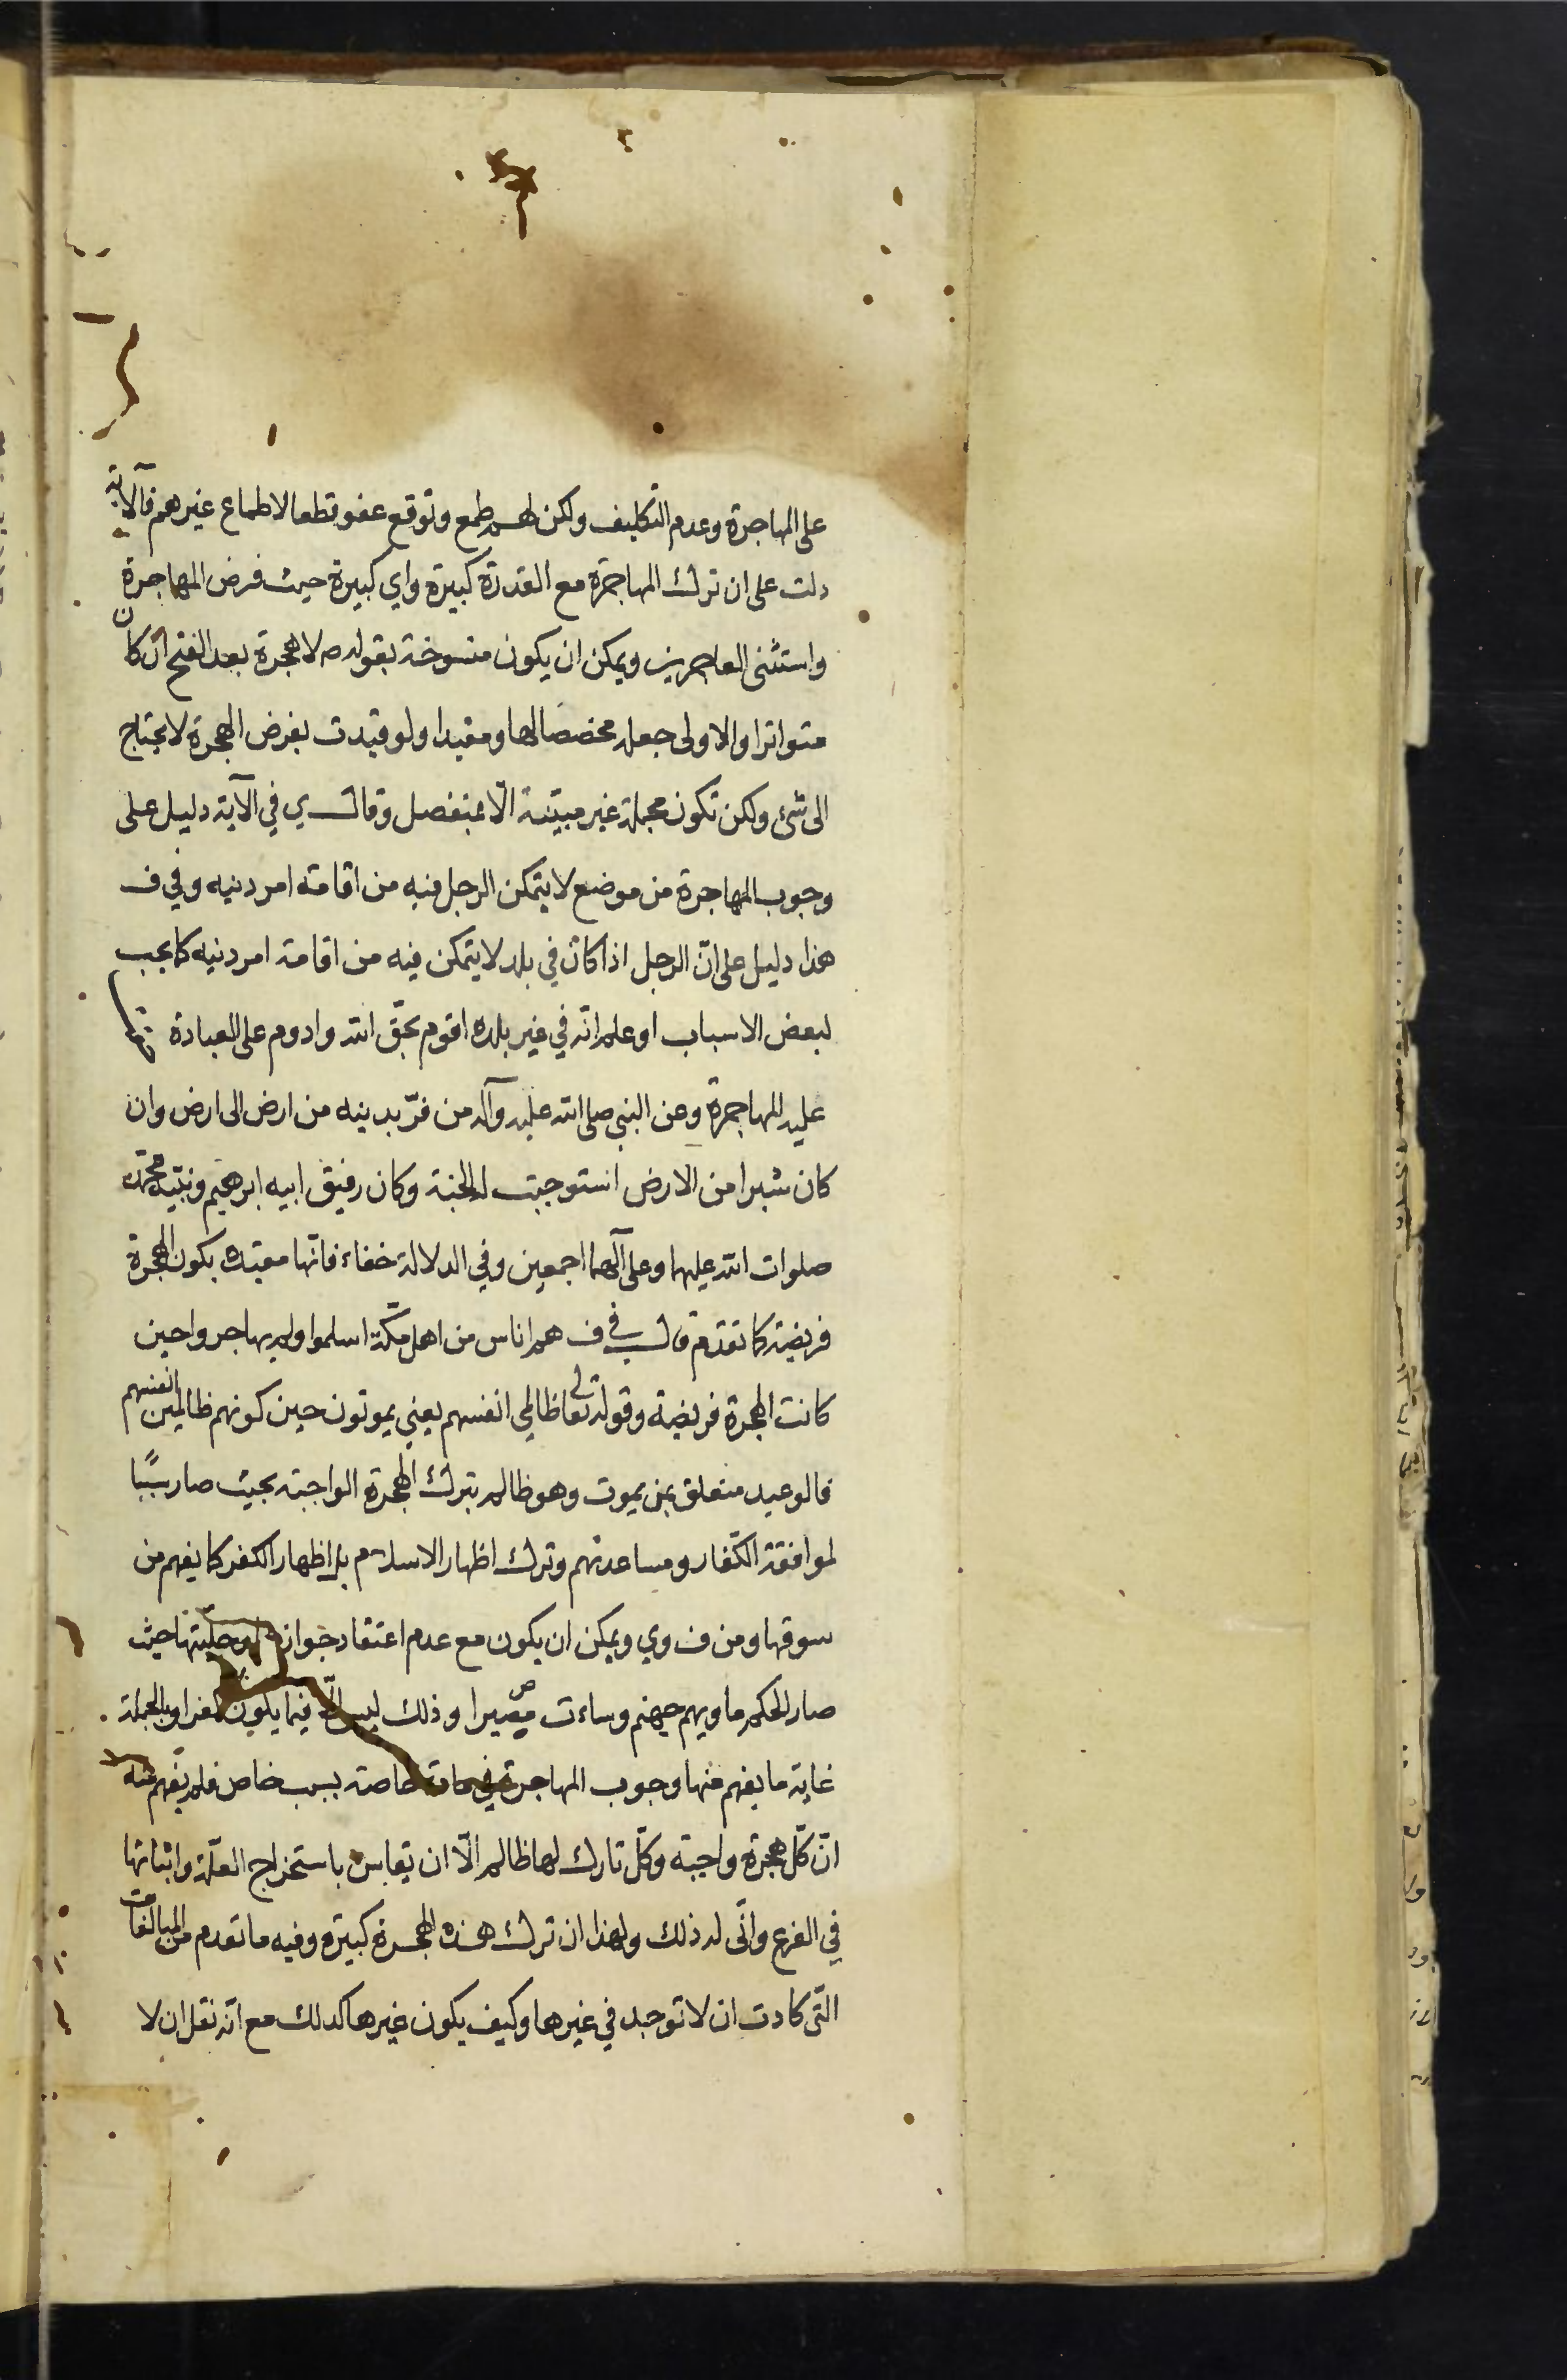 على المهاجرة وعدم التكليف ولكن لهم طمع وتوقع عفو قطعا لاطماع غيرهم فالآية
دلت على ان ترك المهاجرة مع القدرة كبيرة واي كبيرة حيث فرض المهاجرة
واستثنى العاجزين ويمكن ان يكون منسوخة بقوله ص لا هجرة بعد الفتح ان كان
متواترا والاولى جعله مخصصا لها ومقيدا ولو قيدت بفرض الهجرة لا يحتاج
الى شئ ولكن تكون مجملة غير مبيّنة الّا بمنفصل وقال ي في الآية دليل على
وجوب المهاجرة من موضع لا يتمكن الرجل فيه من اقامة امر دينه وفي ف
هذا دليل على انّ الرجل اذا كان في بلد لا يتمكن فيه من اقامة امر دينه كما يجب
لبعض الاسباب او علم انّه في غير بلده اقوم بحقّ الله وادوم على العبادة
عليه المهاجرة وعن النبي صلى الله عليه وآله من فرّ بدينه من ارض الى ارض وان
كان شبرا من الارض استوجبت له الجنة وكان رفيق ابيه ابرهيم ونبيّه محمّد
صلوات الله عليهما وعلى آلهما اجمعين وفي الدلالة خفاء فانّها مقيّدة بكون الهجرة
فريضة كما تقدّم قال في ف هم اناس من اهل مكّة اسلموا ولم يهاجروا حين
كانت الهجرة فريضة وقوله تعالى ظالمي انفسهم يعني يموتون حين كونهم ظالمين انفسهم
فالوعيد متعلق بمن يموت وهو ظالم بترك الهجرة الواجبة بحيث صار سببًا
لموافقة الكفّار ومساعدتهم وترك اظهار الاسلام بل اظهار الكفر كما يفهم من
سوقها ومن ف وي ويمكن ان يكون مع عدم اعتقاد جواز وحلّيتها حيث
صار الحكم مأويهم جهنم وساءت مصيرا وذلك ليس الّا فيما يكون كفرا وبالجملة
غاية ما يفهم منها وجوب المهاجرة في مادة خاصة بسبب خاص فلم يفهم منه
انّ كلّ هجرة واجبة وكلّ تارك لها ظالم الّا ان يقاس باستخراج العلّة واثباتها
في الفرع وانّى له ذلك ولهذا ان ترك هذه الهجرة كبيرة وفيه ما تقدم من المبالغات
الّتى كادت ان لا توجد في غيرها وكيف يكون غيرها كذلك مع انّه نقل ان لا